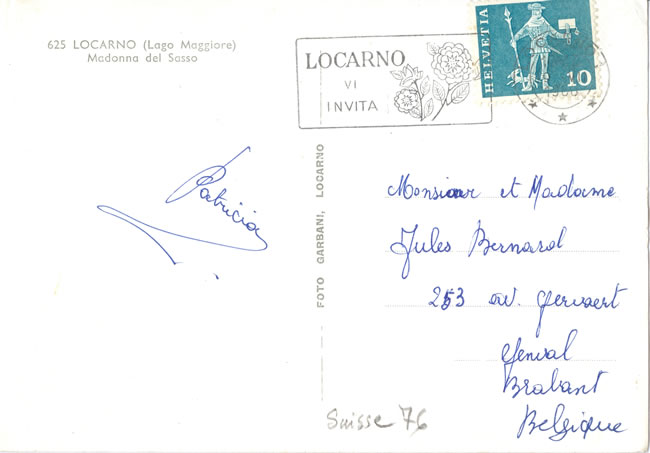 625 LOCARNO (Lago Maggiore)
Madonna del Sasso
LOCARNO
VI
INVITA
HELVETIA
10
Patricia
FOTO GARBANI, LOCARNO
Monsieur et Madame
Jules Bernard
253 av. Gevaert
Genval
Brabant
Belgique
Suisse 76